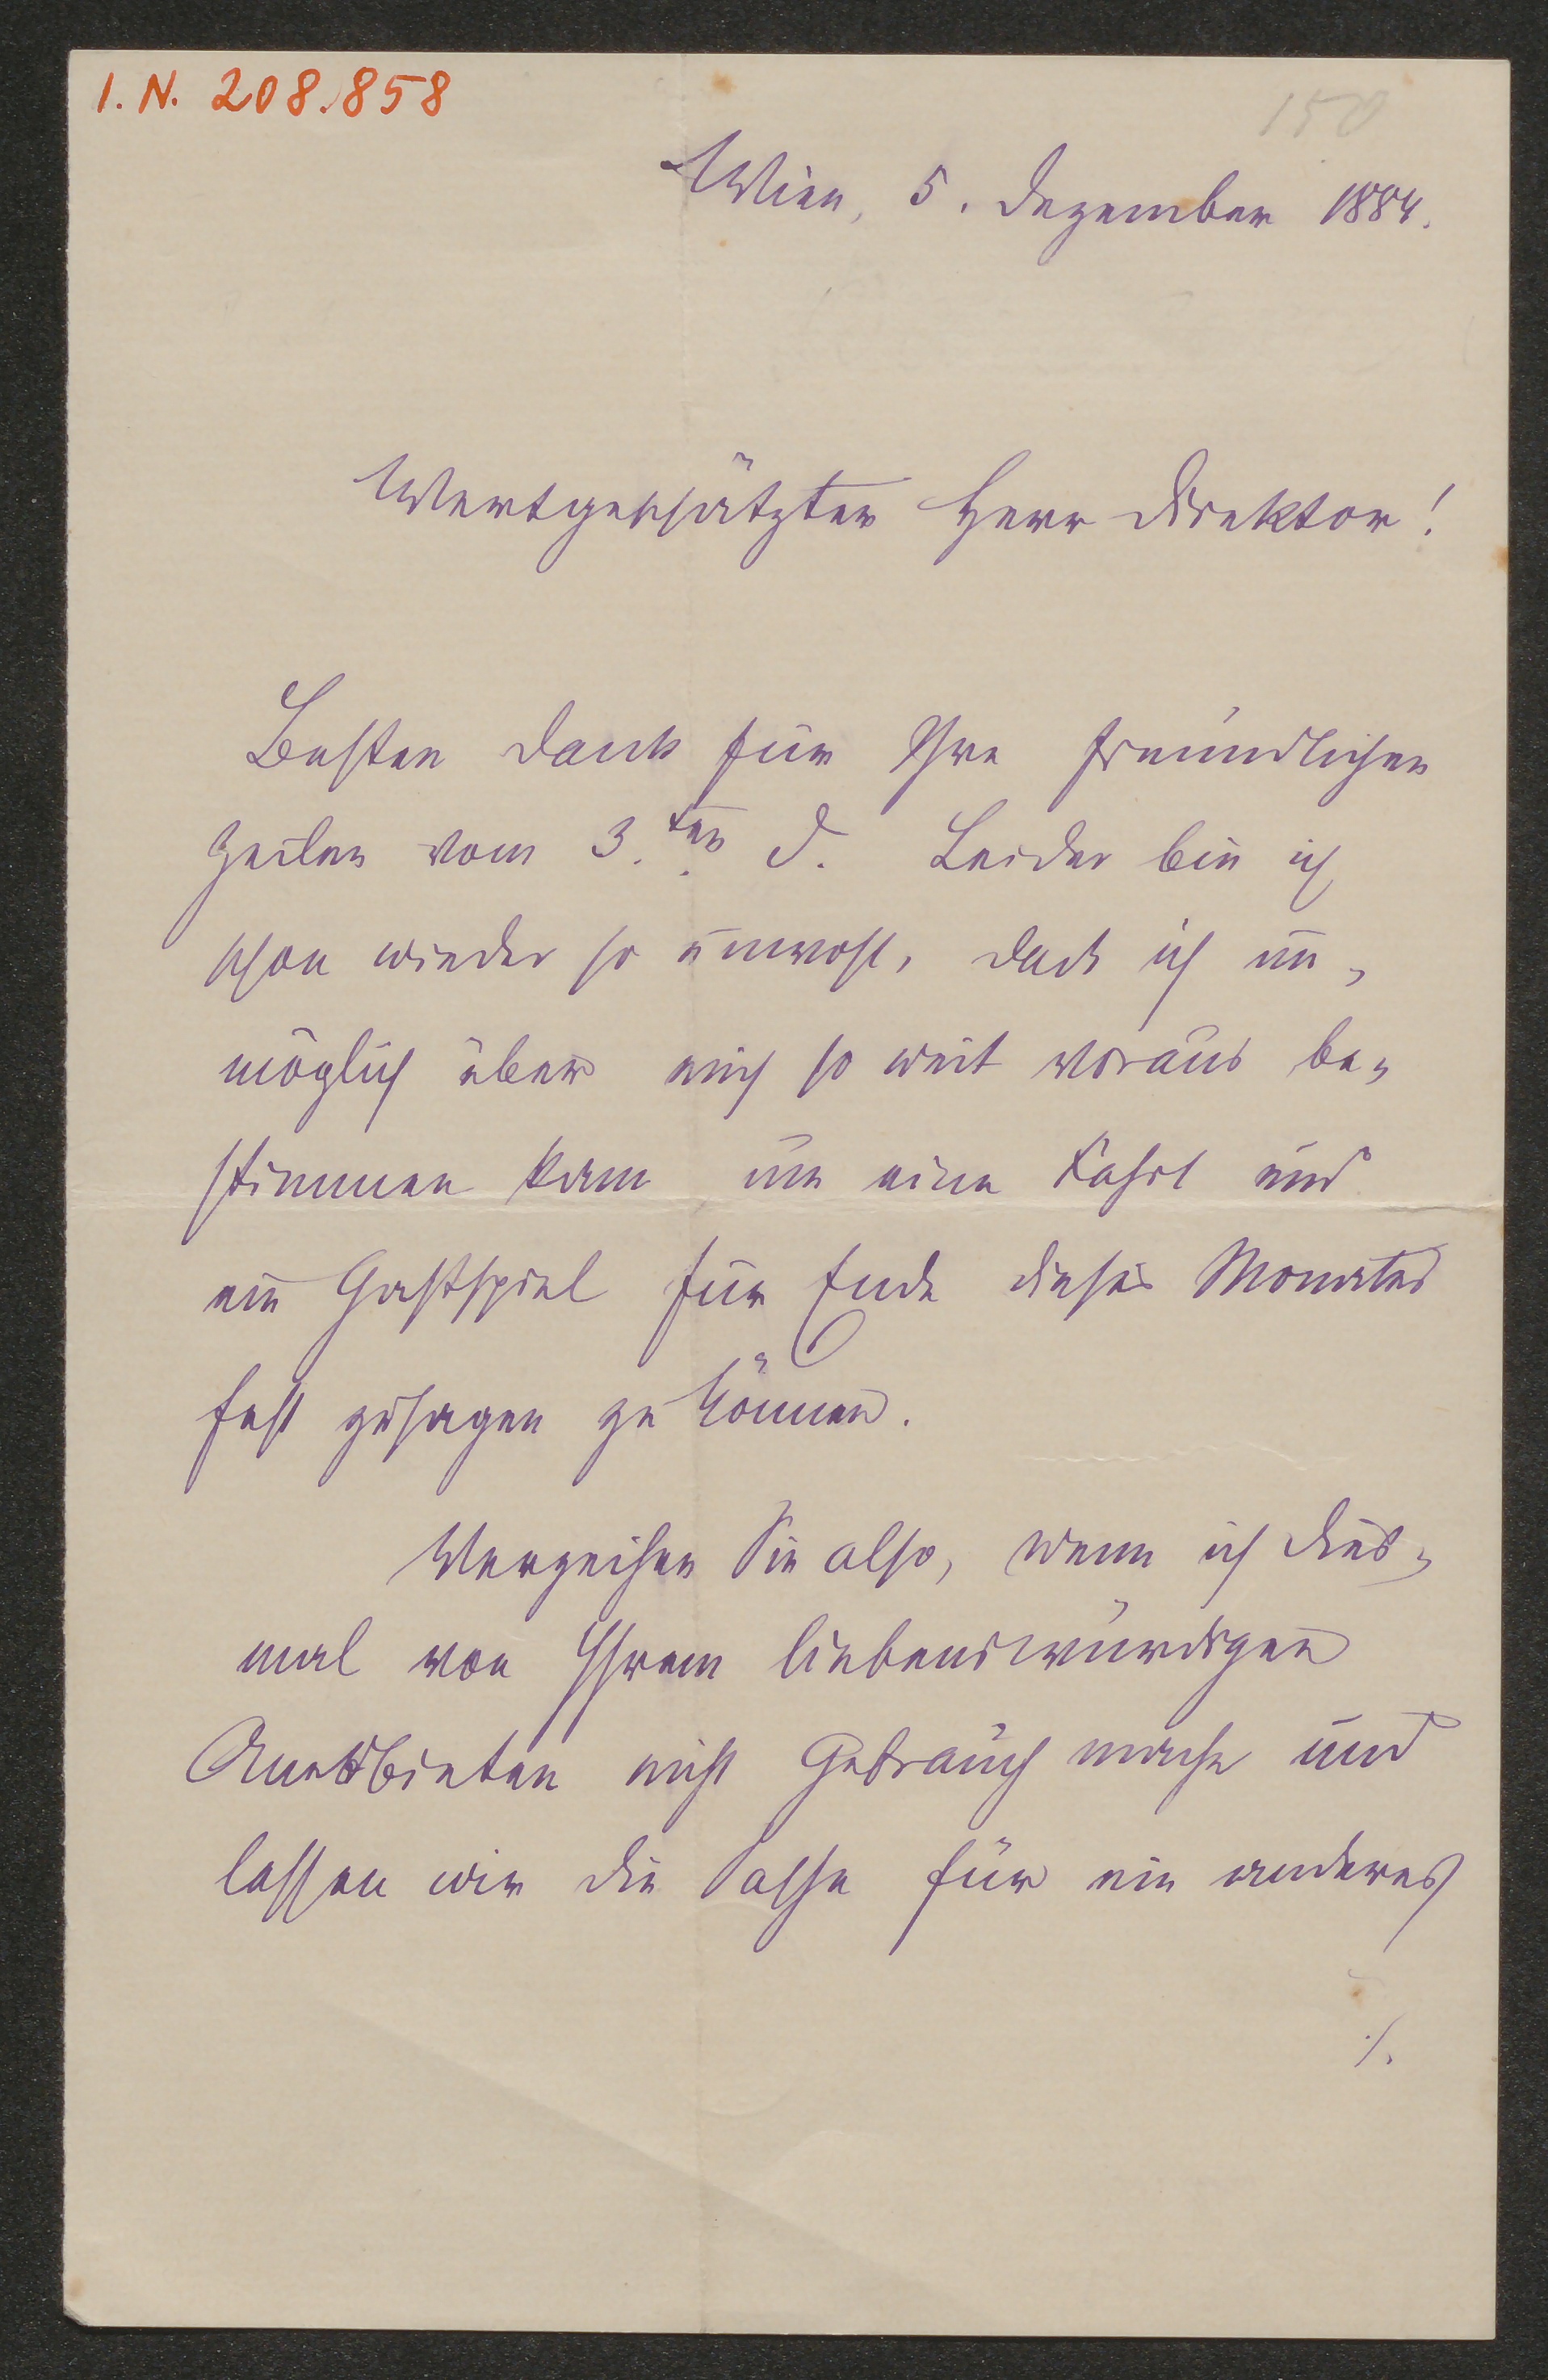 I. N. 208.858
150
Wien, 5. Dezember 1884.
Wertgeschätzter Herr Direktor!
Besten Dank für Ihre freundlichen
Zeilen vom 3.ten d. Leider bin ich
schon wieder so unwohl, dass ich un-
möglich über mich so weit voraus be-
stimmen kann um eine Fahrt und
ein Gastspiel für Ende dieses Monates
fest zusagen zu können.
Verzeihen Sie also, wenn ich dies-
mal von Ihrem liebenswürdigen
nicht Gebrauch mache und
lassen wir die Sache für ein anderes
./.